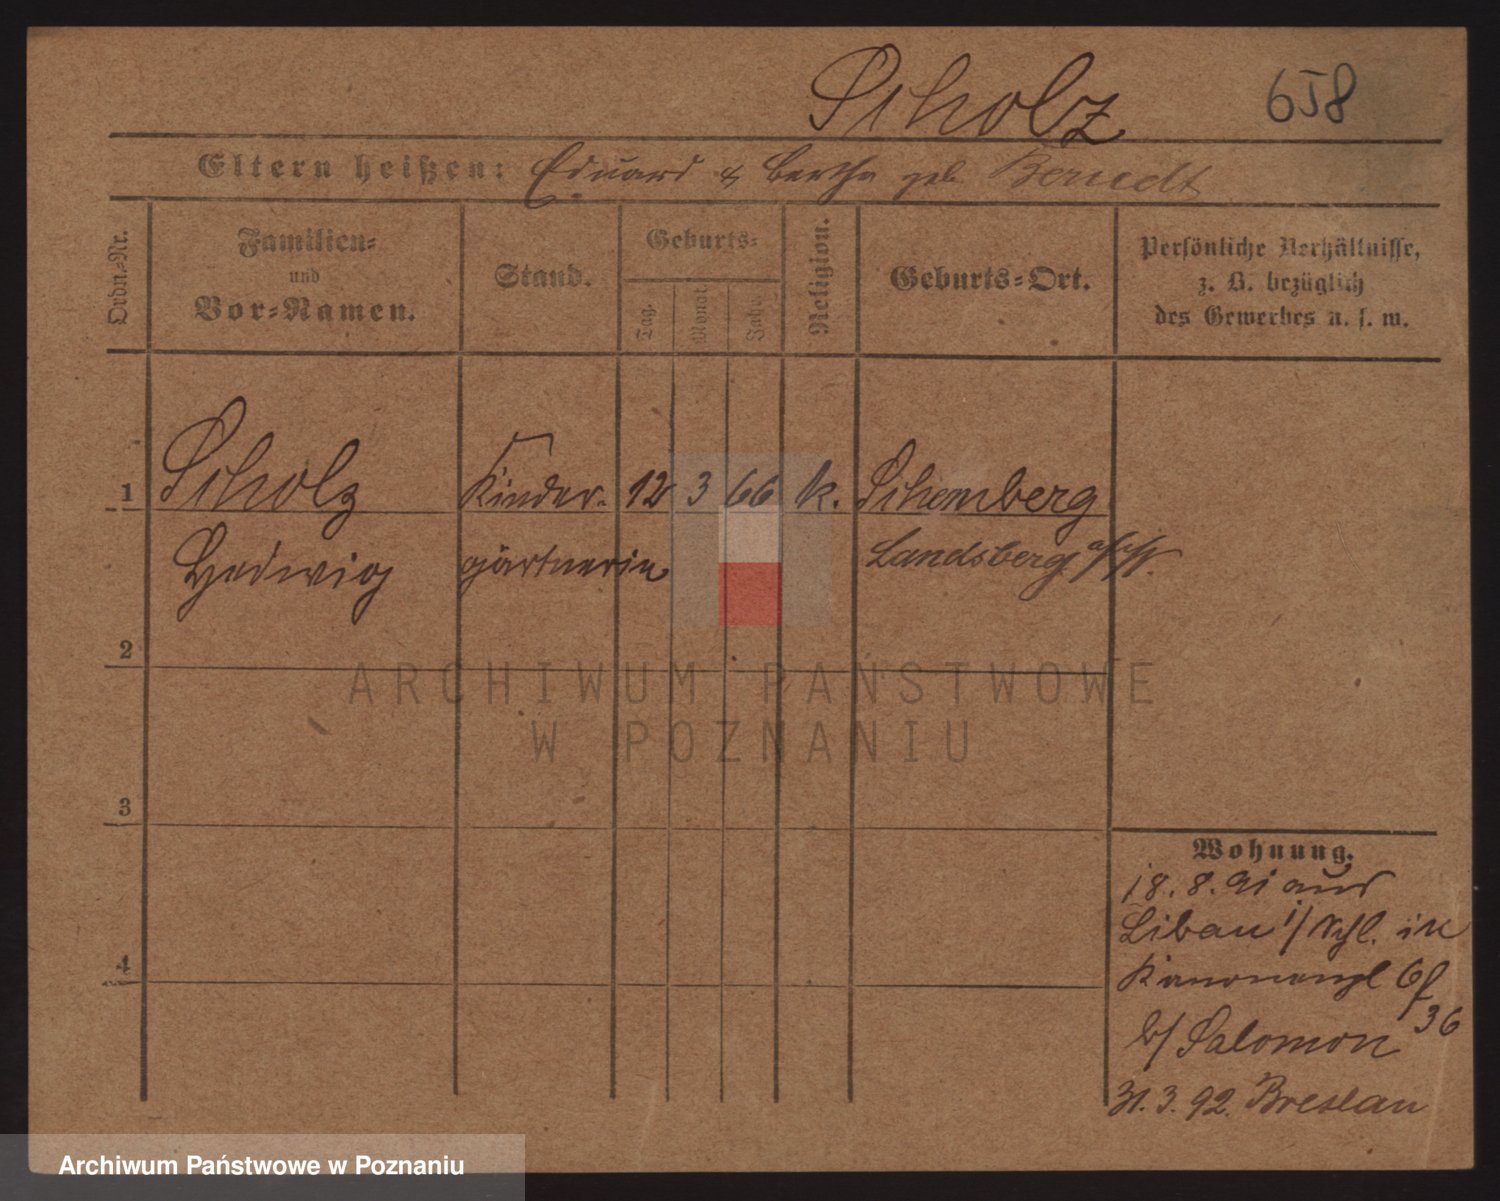 Scholz 658
Eltern heißen: Eduard & Bertha geb Berndt
Ordn.-Nr.
Familien-
und
Vor-Namen.
Stand.
Geburts-
Tag. Monat. Jahr.
Religion.
Geburts-Ort.
Persönliche Verhältnisse,
z. B. bezüglich
des Gewerbes u. s. w.
1 Scholz Kinder- 12 3 66 k. Schemberg
Hedwig gärtnerin Landsberg
2
3
4
Wohnung.
18.8.91 aus
Libau i/Schl. in
Kanonenpl 6
36
b/Salomon
31.3.92. Breslau
ARCHIWUM PAŃSTWOWE
W POZNANIU
Archiwum Państwowe w Poznaniu